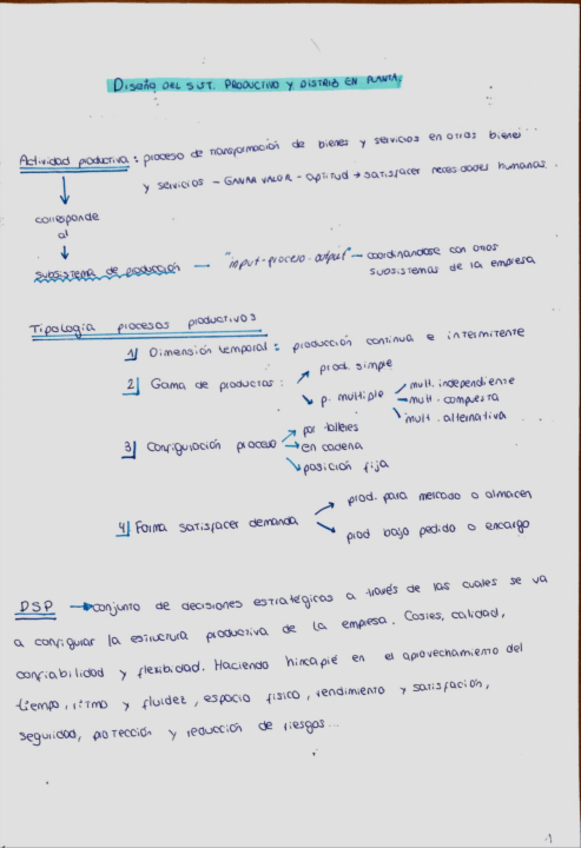 DISEÑO DEL SIST. PRODUCTIVO Y DISTRIB EN PLANTA.
Actividad productiva : proceso de transformación de bienes y servicios en otros bienes
y servicios - GANAR VALOR - aptitud → satisfacer necesidades humanas.
↓
corresponde
al
↓
subsistema de producción — "input-proceso-output" — coordinandose con otros
subsistemas de la empresa
Tipología procesos productivos
1) Dimensión temporal : producción continua e intermitente
2) Gama de productos : ↗ prod. simple
↘ p. multiple mult. independiente
mult. compuesta
mult. alternativa
3) Configuración proceso ↗ por talleres
→ en cadena
↘ posición fija
4) Forma satisfacer demanda ↗ prod. para mercado o almacen
↘ prod bajo pedido o encargo
DSP → conjunto de decisiones estratégicas a través de las cuales se va
a configurar la estructura productiva de la empresa. Costes, calidad,
confiabilidad y flexibilidad. Haciendo hincapié en el aprovechamiento del
tiempo, ritmo y fluidez, espacio físico, rendimiento y satisfación,
seguridad, protección y reducción de riesgos...
1